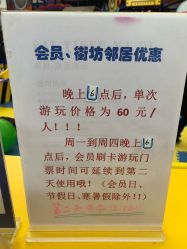 会员、街坊邻居优惠
晚上6点后，单次
游玩价格为 60 元/
人！！！
周一到周四晚上6
点后，会员刷卡游玩门
票时间可延续到第二
天使用哦！（会员日、
节假日、寒暑假除外!!）